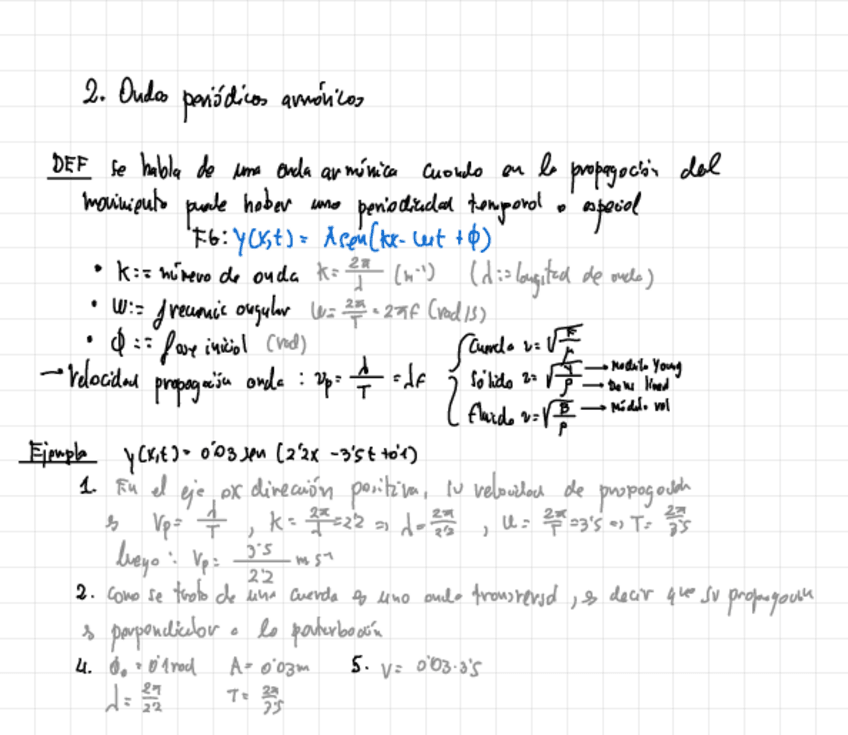 2. Ondas periódicas armónicas
DEF se habla de una onda armónica cuando en la propagación del
movimiento puede haber una periodicidad temporal o espacial
y(x,t) = A sen(kx - ωt + ϕ)
• k:= número de onda k = 2π/λ (m⁻¹) (λ := longitud de onda)
• ω:= frecuenc angular ω = 2π/T = 2πf (rad/s)
• ϕ := fase inicial (rad)
→ Velocidad propagación onda : vp = λ/T = λf
Cuerda v = √
Sólido v = √ → Modulo Young
→ Dens lineal
Fluido v = √B/ρ → Módulo vol
Ejemplo y(x,t) = 0'03 sen (2'2x - 3'5t + 0'1)
1. En el eje OX dirección positiva, su velocidad de propagación
es Vp = λ/T , k = 2π/λ = 2'2 ⇒ λ = 2π/2'2 , ω = 2π/T = 3'5 ⇒ T = 2π/3'5
luego : Vp = 3'5/2'2 m s⁻¹
2. Como se trata de una cuerda es una onda transversal, es decir que su propagación
es perpendicular a la perturbación
4. ϕ₀ = 0'1 rad A = 0'03 m 5. V = 0'03·3'5
λ = 2π/2'2 T = 2π/3'5